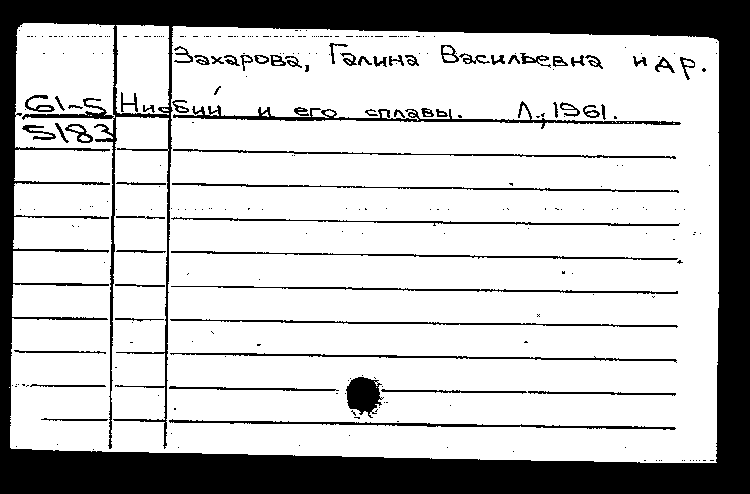 Захарова, Галина Васильевна и др.
61-5 Ниобий и его сплавы. Л., 1961.
5183